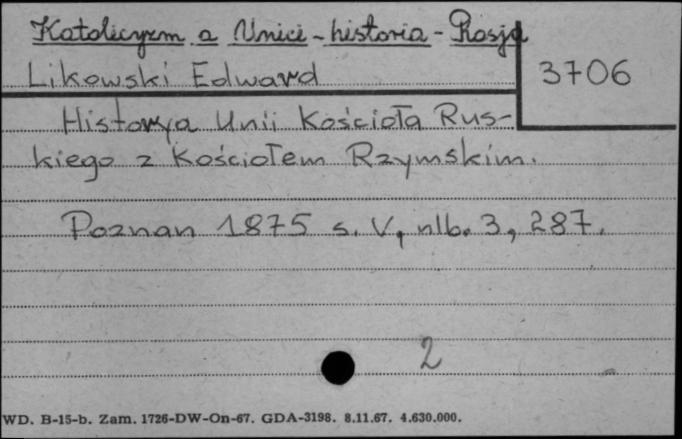 Katolicyzm a Unici - historia - Rosja
Likowski Edward
3706
Historya Unii Kościoła Rus-
kiego z Kościołem Rzymskim.
Poznan 1875 s. V, nlb. 3, 287.
2
WD. B-15-b. Zam. 1726-DW-On-67. GDA-3198. 8.11.67. 4.630.000.